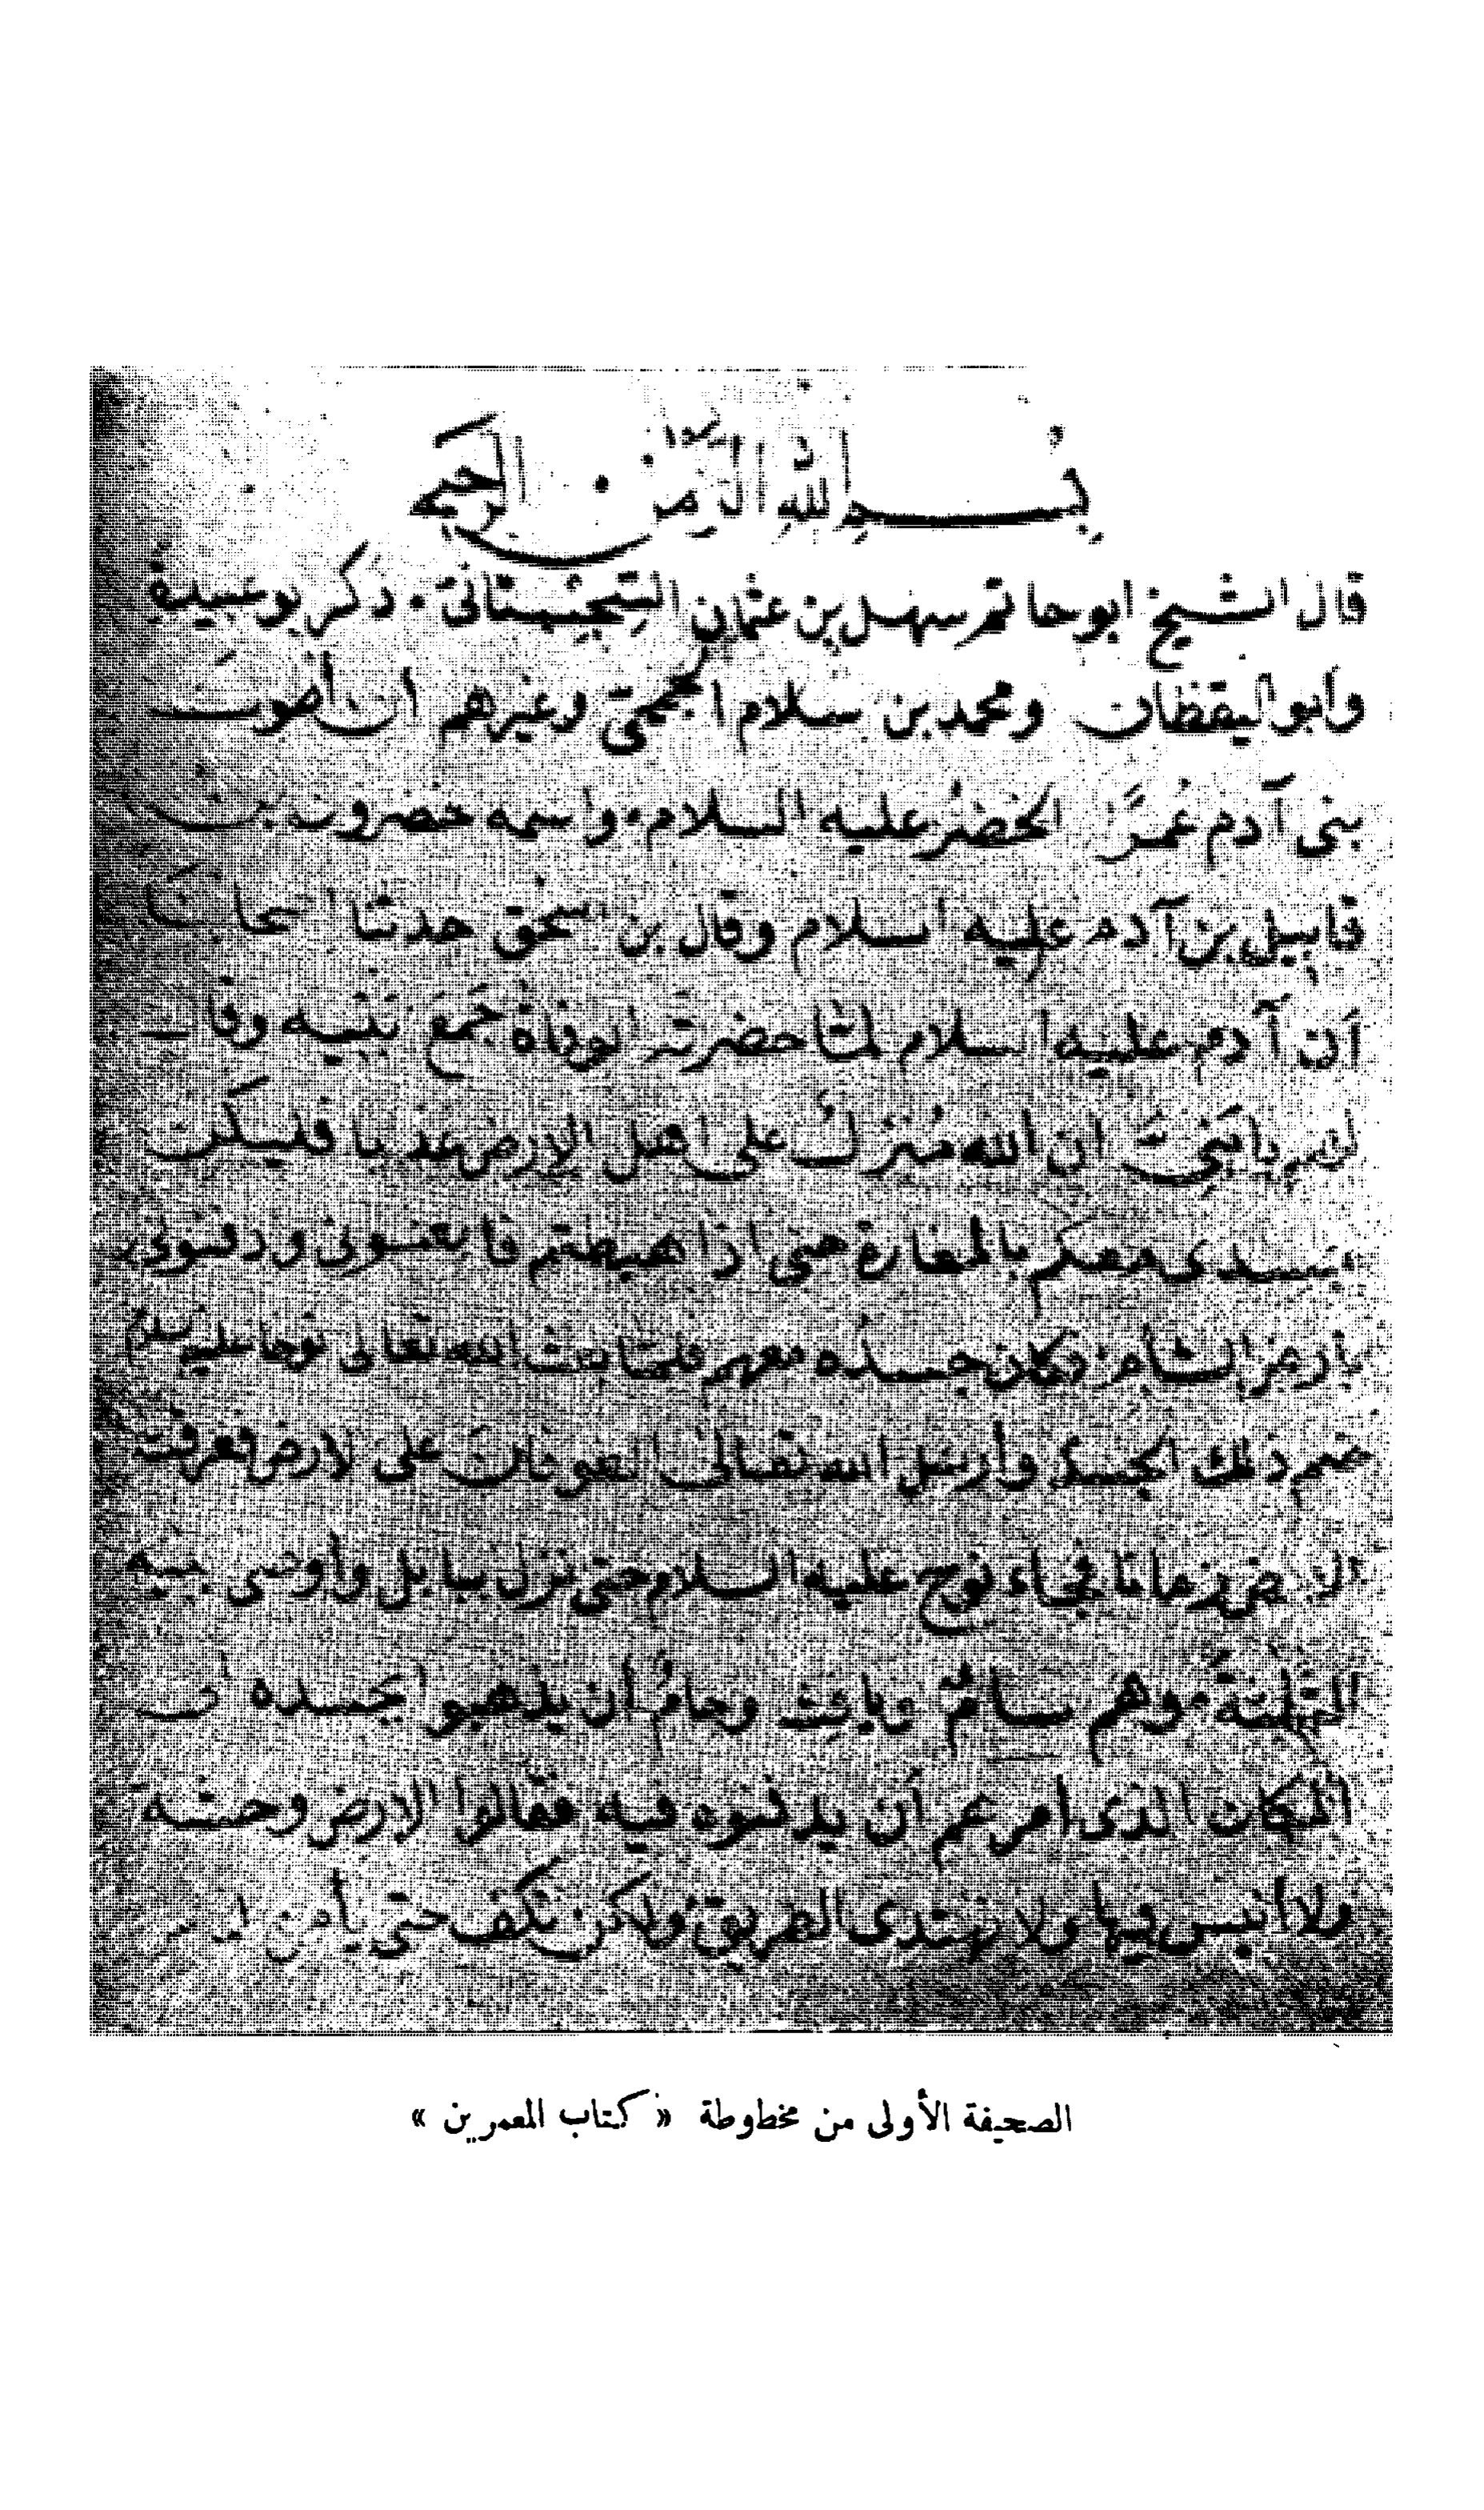 بسم الله الرحمن الرحيم
قال الشيخ ابو حاتم سهل بن عثمان السجستانى . ذكر ابو عبيدة
وابو اليقظان ومحمد بن سلام الجمحى وغيرهم أن أطول
بنى آدم عمرًا الخضر عليه السلام . واسمه خضرون بن
قابيل بن آدم عليه السلام وقال بن اسحق حدثنا اصحابنا
أن آدم عليه السلام لما حضرته الوفاة جمع بنيه وقال
لهم يا بنىّ ان الله منزل على اهل الارض عذابا فليكن
جسدى معكم بالمغارة حتى اذا هبطتم فابعثونى وادفنونى
بأرض الشأم . فكان جسده معهم فلما بعث الله تعالى نوحا عليه السلام
ضم ذلك الجسد وأرسل الله تعالى الطوفان على الارض فغرقت
الارض زمانا فجاء نوح عليه السلام حتى نزل ببابل وأوصى بنيه
الثلاثة . وهم سام ويافث وحام أن يذهبوا بجسده الى
المكان الذى أمرهم أن يدفنوه فيه فقالوا الارض وحشة
ولا أنيس بها ولا نهتدى الطريق ولكن نكف حتى يأمن
الصحيفة الأولى من مخطوطة « كتاب المعمرين »